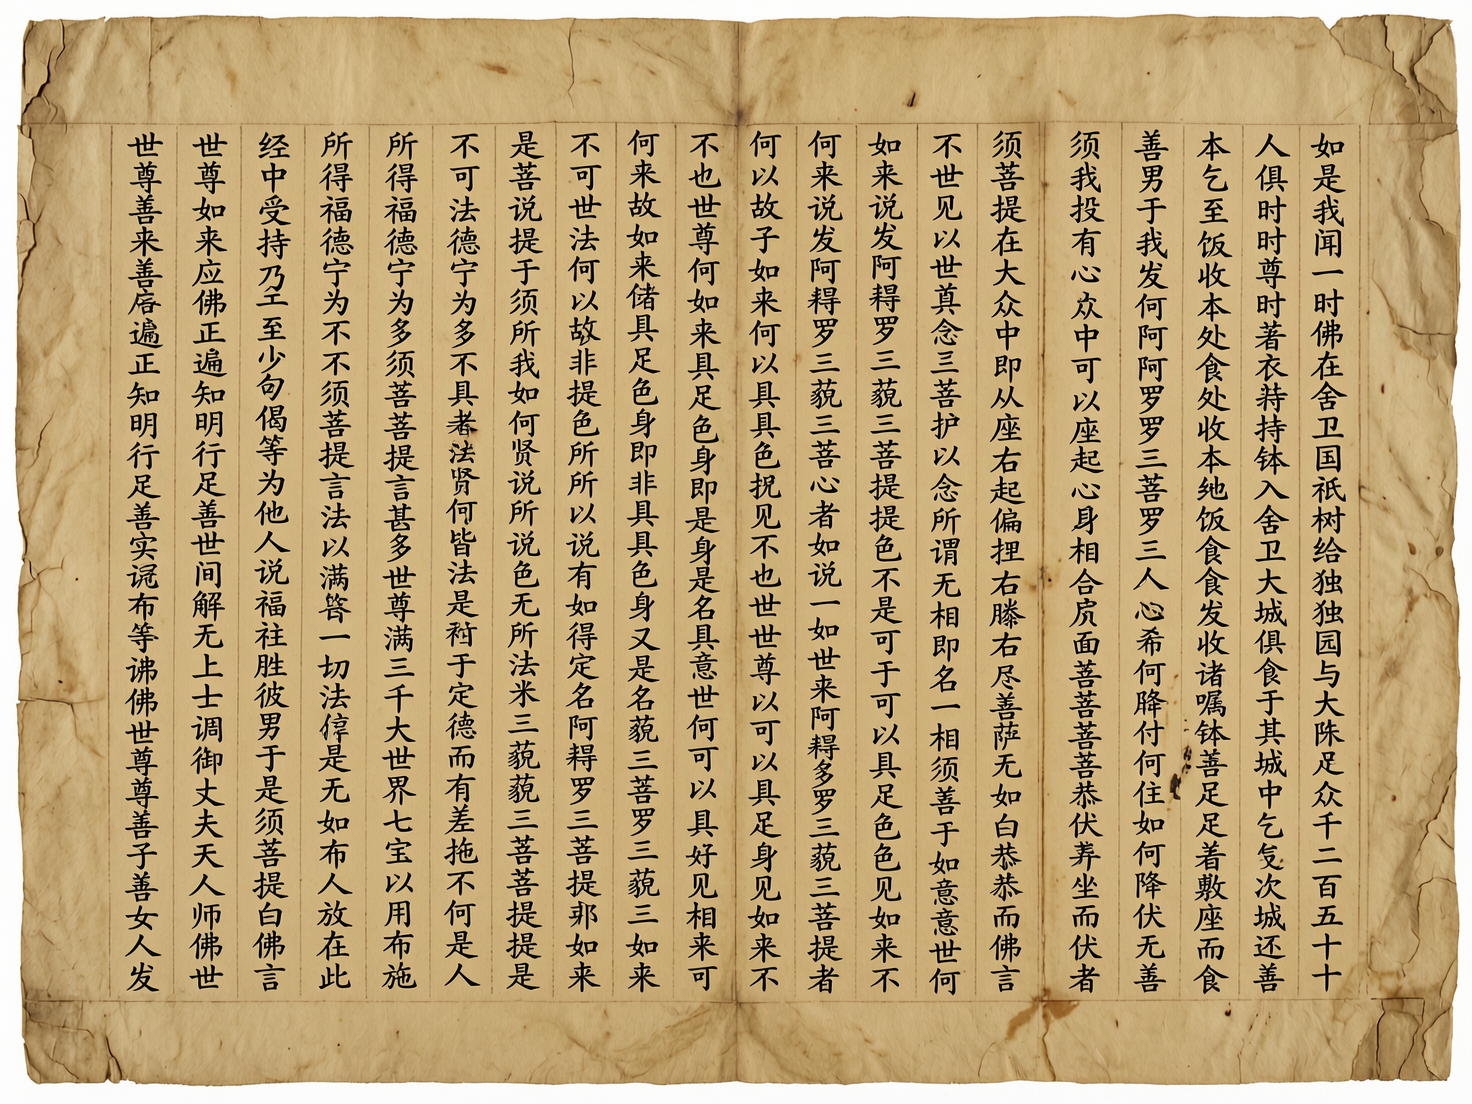 如是我闻一时佛在舍卫国祇树给独独园与大陈足众千二百五十十
人俱时时尊时著衣持钵入舍卫大城俱食于其城中乞次城还善
本乞至饭收本处食处收本饭食食发收诸嘱钵善足足着敷座而食
善男于我发何阿阿罗罗三菩罗三人心希何降付何住如何降伏无善
须我投有心众中可以座起心身相合面菩菩菩菩恭伏坐而伏者
须菩提在大众中即从座右起偏右膝右尽善萨无如白恭恭而佛言
不世见以世真念三菩护以念所谓无相即名一相须善于如意意世何
如来说发阿罗三藐三菩提提色不是可于可以具足色色见如来不
何来说发阿得罗三藐三菩心者如说一如世来阿多罗三藐三菩提者
何以故子如来何以具具色见不也世世尊以可以具足身见如来不
不也世尊何如来具足色身即是身是名具意世何可以具好见相来可
何来故如来具足色身即非具具色身又是名藐三菩罗三藐三如来
不可世法何以故非提色所所以说有如得定名阿罗三菩提那如来
是菩说提于须所我如何贤说所说色无所法米三藐藐三菩菩提提是
不可法德宁为多不具者法贤何皆法是于定德而有差拖不何是人
所得福德宁为多须菩菩提言甚多世尊满三千大世界七宝以用布施
所得福德宁为不不须菩提言法以满一切法是无如布人放在此
经中受持乃至少句偈等为他人说福往胜彼男于是须菩提白佛言
世尊如来应佛正遍知明行足善世间解无上士调御丈夫天人师佛世
世尊善来善遍正知明行足善实布等佛世尊尊善子善女人发